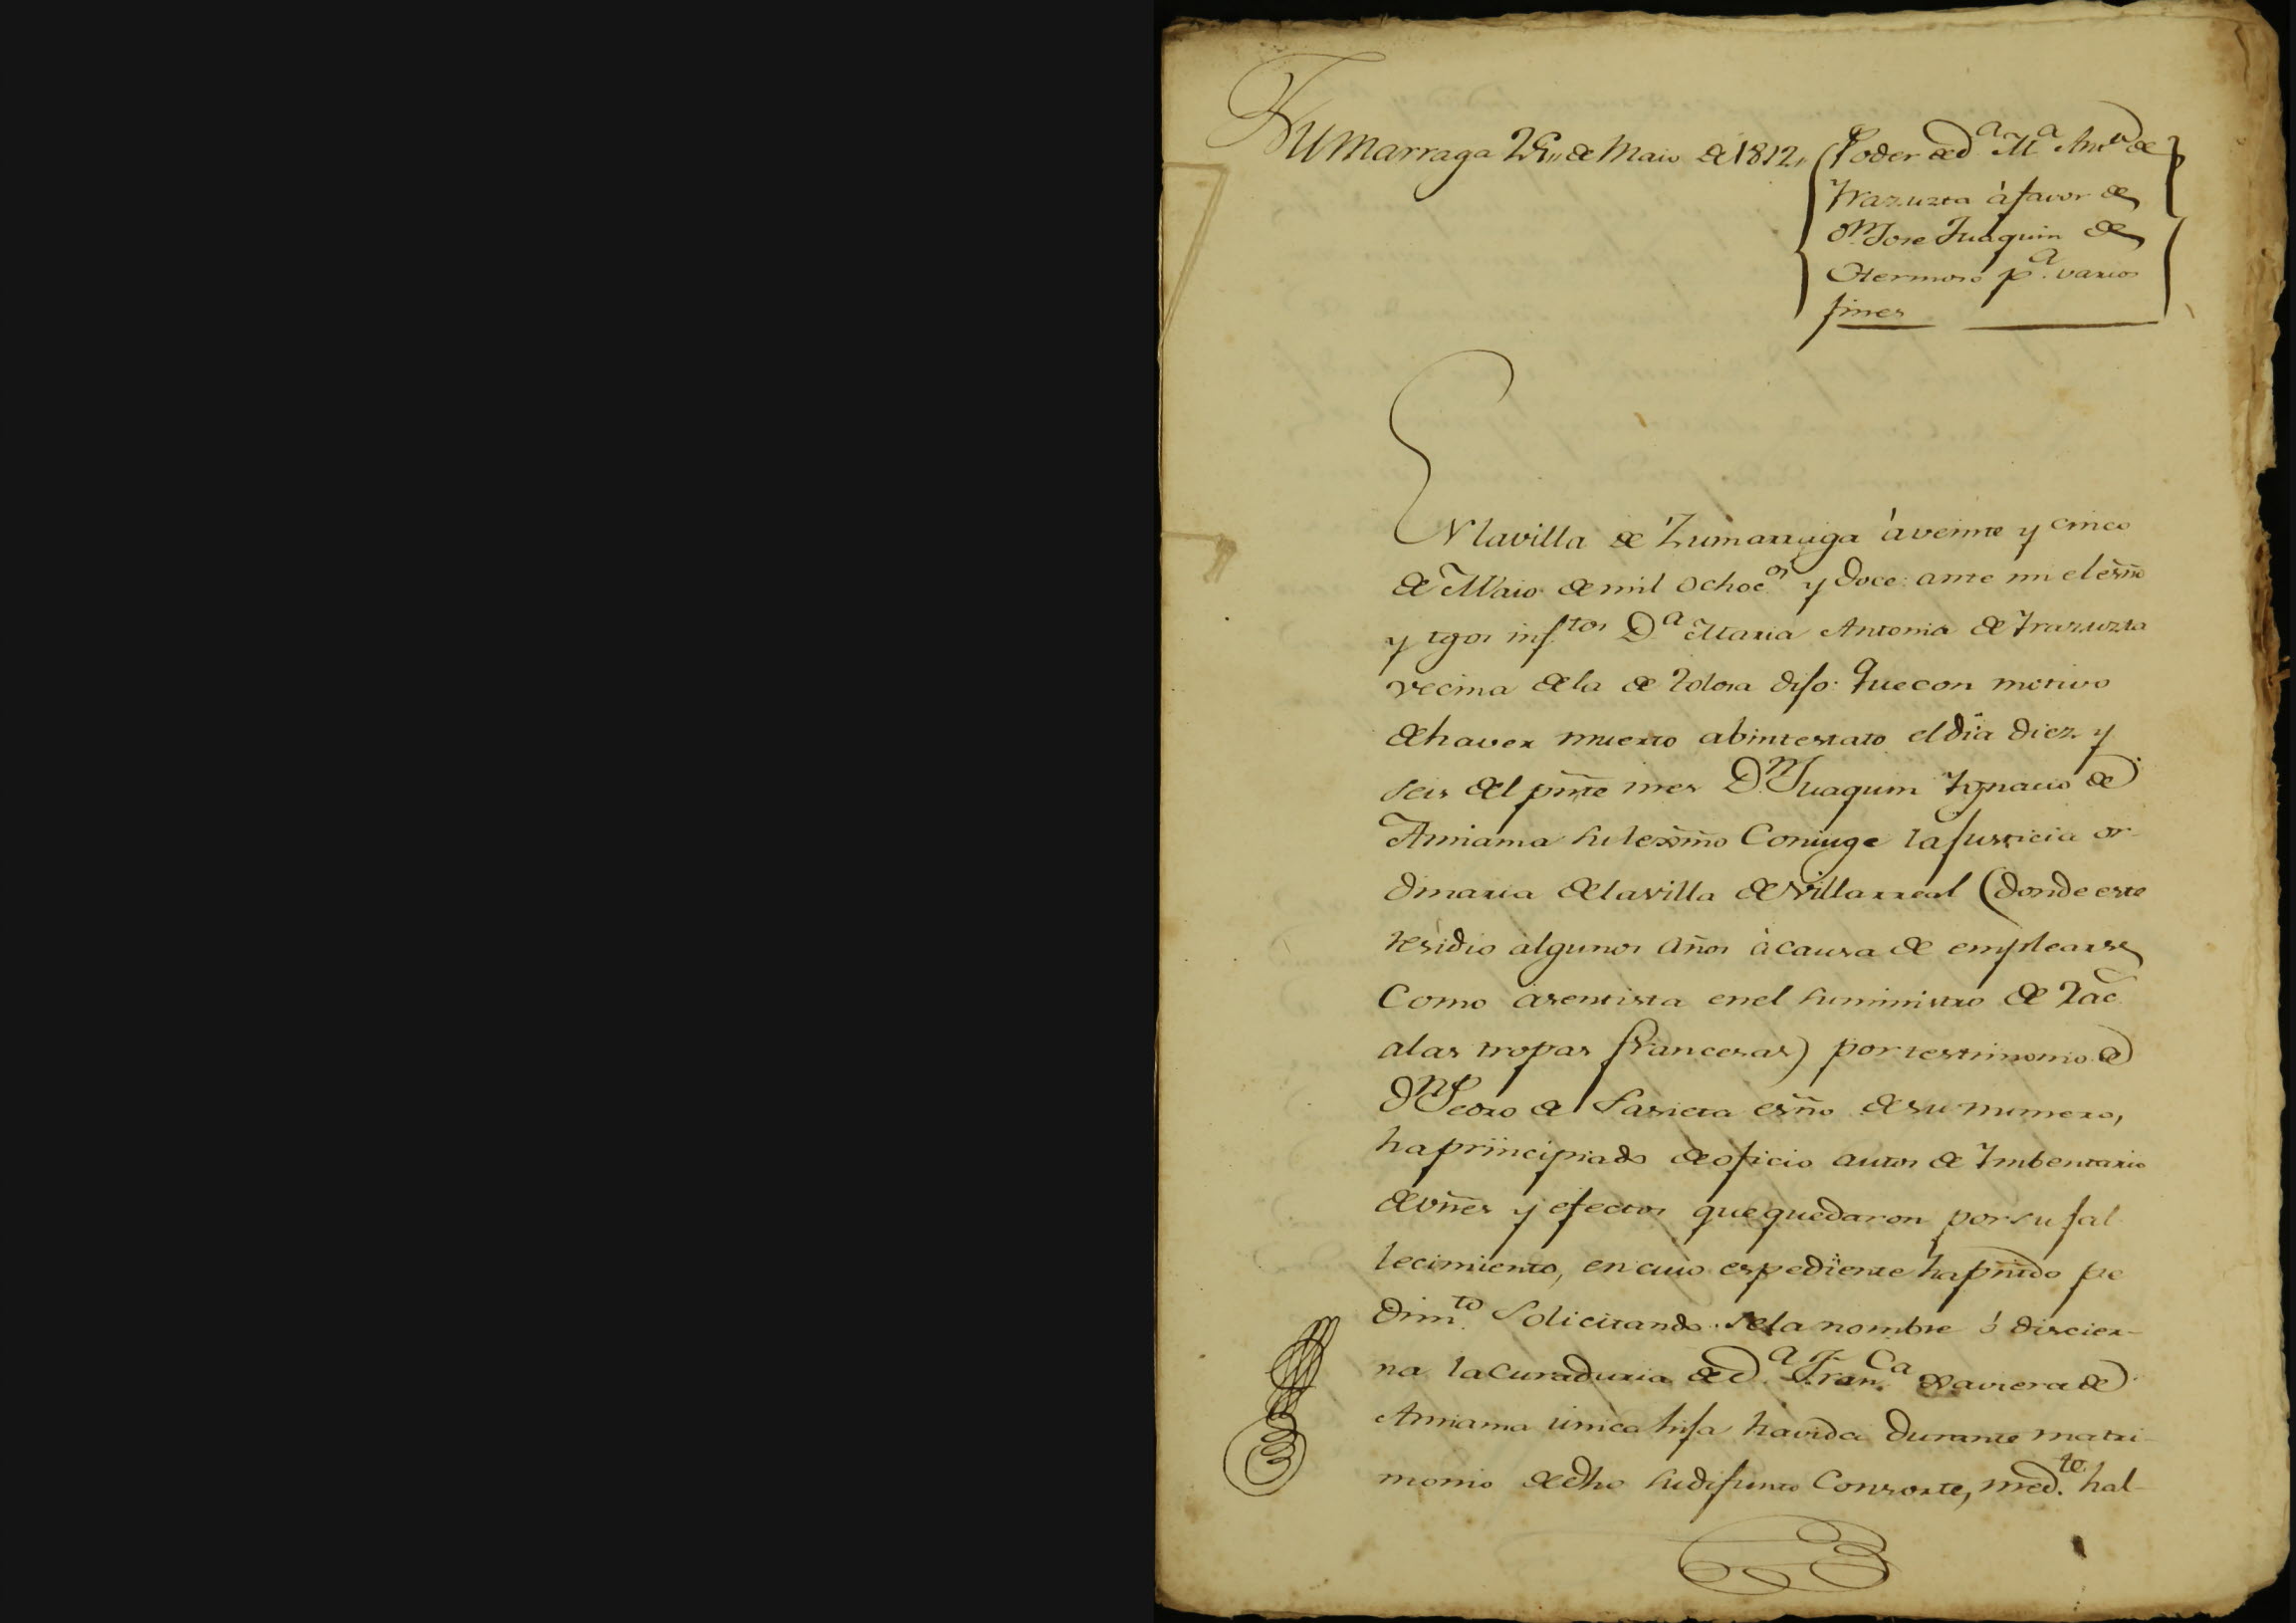 Zumarraga 25,, de Maio de 1812,,
Poder de d.ª M.ª Ant.ª de
Yrazuzta à favor de
d.n Jose Juaquin de
Otermin p.ª varios
fines
En la villa de Zumarraga à veinte y cinco
de Maio de mil ochoc.os y doce: ante mi el esño
y tgos inf.tos D.ª Maria Antonia de Yrazuzta
vecina de la de Tolosa dijo: Que con motivo
de haver muerto abintestato el dia diez y
seis del pñte mes D.n Juaquin Ygnacio de
Arriama su lexmõ Coniuge la justicia or-
dinaria de la villa de Villarreal (donde este
residio algunos años à causa de emplearse
Como asentista en el suministro de Rac.
a las tropas francesas) por testimonio de
d.n Pedro de Lasieta esño de su numero,
ha principiado de oficio autos de Imbentario
de vñes y efectos que quedaron por su fal-
lecimiento, en cuio espediente ha pñtdo pe
dim.to Solicitando se la nombre ó discier-
na la Curaduria de d.ª Fran.ca Xaviera de
Arriama unica hija havida durante matri-
monio de dho su difunto Consorte, med.te hal-